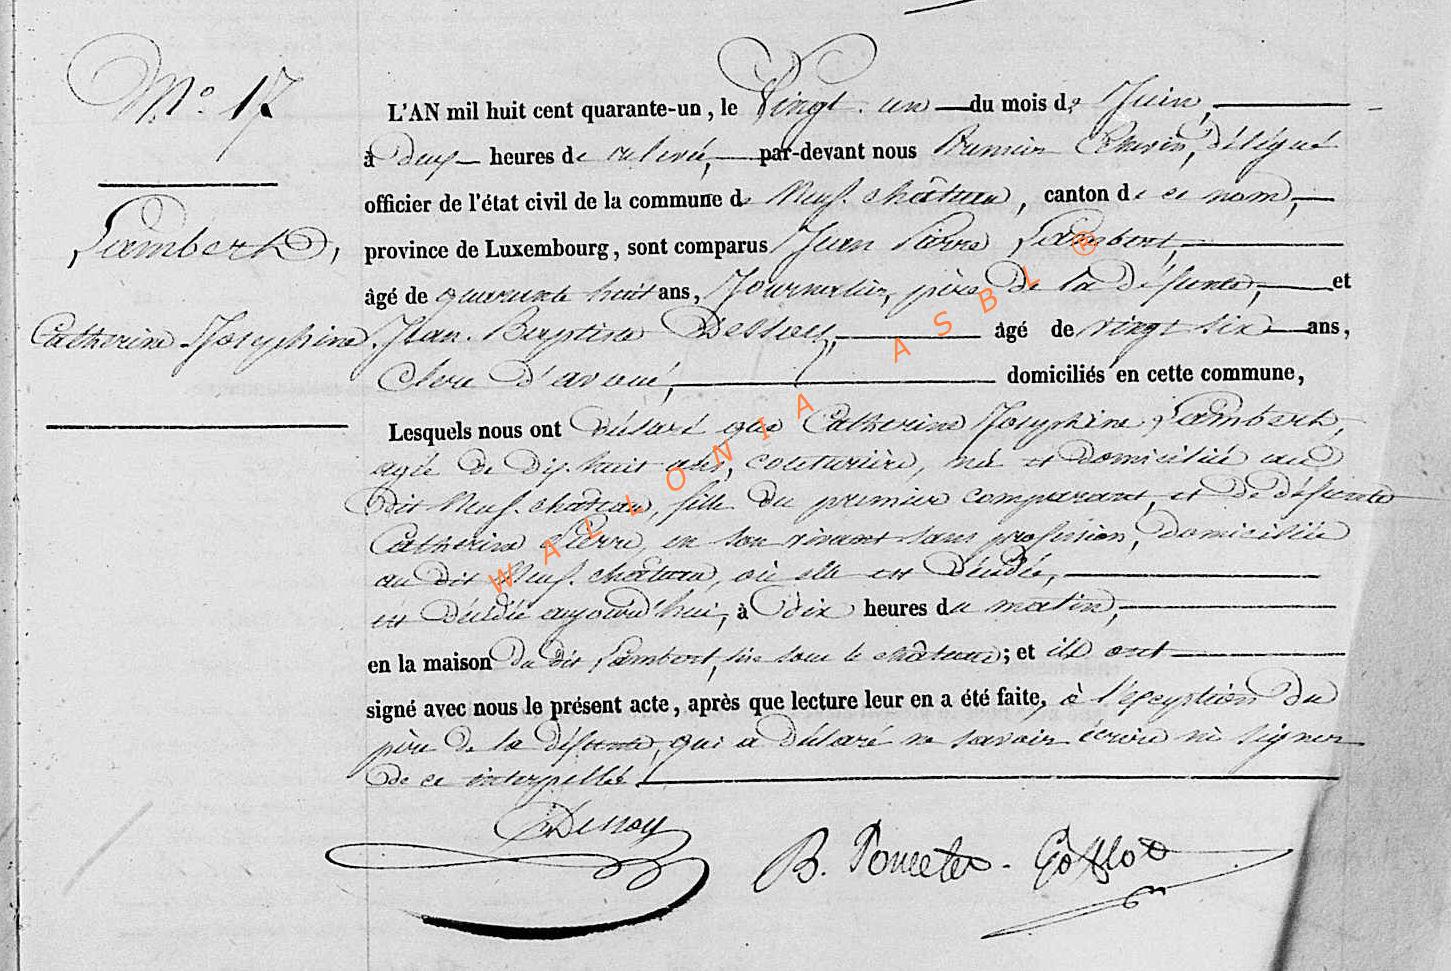 N.° 17
L'AN mil huit cent quarante-un, le Vingt un du mois de Juin,
à deux heures de relevée, par-devant nous Premier Echevin, délégué
officier de l'état civil de la commune de Neuf-château, canton de ce nom,
Lambert,
province de Luxembourg, sont comparus Jean Pierre Lambert,
âgé de quarante huit ans, Journalier, père de la défunte, et
Catherine Josephine.
Jean-Baptiste Dessoy, âgé de vingt six ans,
Clerc d'avoué, domiciliés en cette commune,
Lesquels nous ont déclaré que Catherine Josephine Lambert,
agée de dix-huit ans, couturière, née et domiciliée au
dit Neuf-château, fille du premier comparant, et de défunte
Catherine Pierre, en son vivant sans profession, domiciliée
au dit Neuf-château, où elle est décédée,
est décédée aujourd'hui, à dix heures du matin,
en la maison du dit Lambert, sise sous le château; et ils ont
signé avec nous le présent acte, après que lecture leur en a été faite, à l'exception du
père de la défunte, qui a déclaré ne savoir écrire ni signer
de ce interpellé.
Dessoy
B. Poncelet - Gofflot
WALLONIA ASBL ®